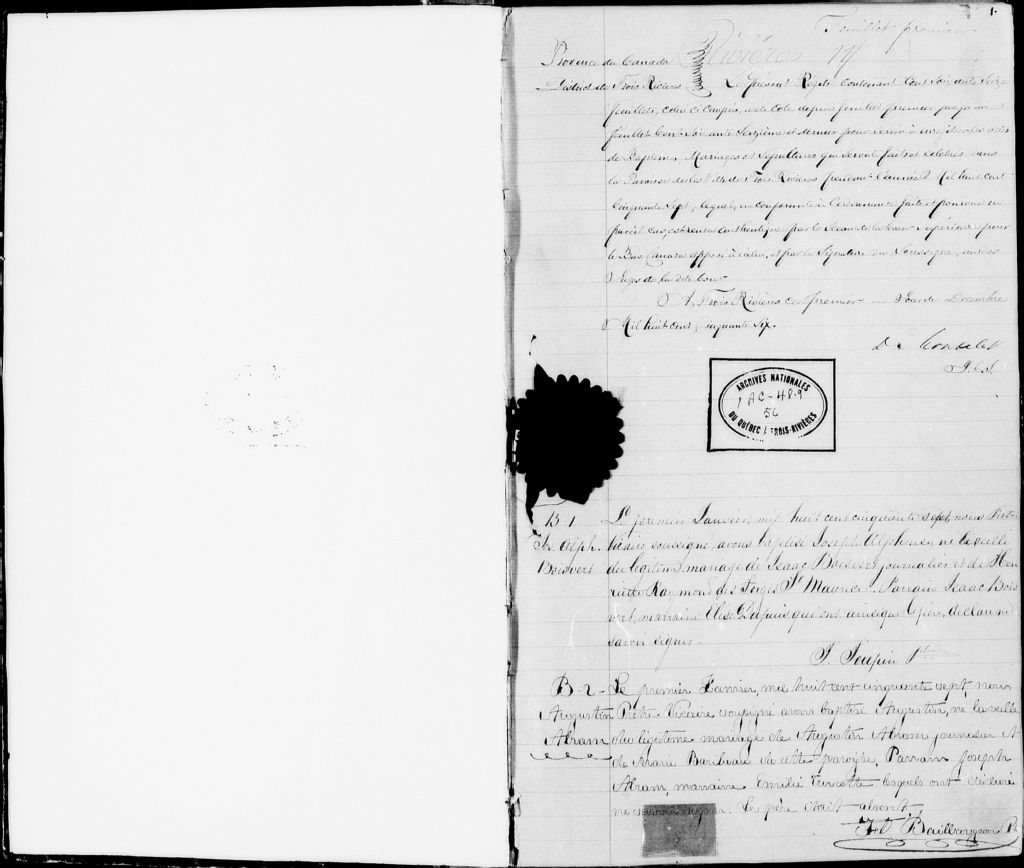 1.
Feuillet premier
Rivières 14
Province du Canada
District de Trois Rivières } Le présent Régistre contenant Cent Soixante Seize
feuillets, cotés et paraphés, a été coté depuis feuillet premier jusqu'au
feuillet Cent Soixante Seizième et dernier pour servir à enrégistrer les actes
de Baptêmes, Mariages et Sépultures qui seront faits et célébrés dans
la Paroisse de la Ville de Trois Rivières pendant l'année Mil huit cent
Cinquante Sept, lequel, en conformité à l'ordonnance faite et pourvue en
pareil cas, est rendu authentique par le Sceau de la Cour Supérieure pour
le Bas Canada apposé à icelui, et par la Signature du Soussigné, un des
Juges de la dite Cour
A Trois Rivières ce premier Jour de Décembre
Mil huit cent Cinquante Six.
D. Mondelet
J.C.S.
ARCHIVES NATIONALES
1 AC-48.9
56
DU QUÉBEC À TROIS-RIVIÈRES
B 1
Jos. Alph.
Boisvert
Le premier Janvier, mil huit cent cinquante sept, nous Prêtre
Vicaire soussigné, avons baptisé Joseph Alphonse, né la veille
du légitime mariage de Isaac Boisvert journalier et de Hen
riette Raymond des Forges St Maurice. Parrain Isaac Bois
vert, marraine Elise Dupuis qui ont ainsi que le père, déclaré ne
savoir signer.
J. Toupin Ptre
B-2-
Augustin
Abram
Le premier Janvier, mil huit cent cinquante sept, nous
Prêtre Vicaire soussigné avons baptisé Augustin, né la veille
du légitime mariage de Augustin Abram journalier et
de Marie Baribeau de cette paroisse, Parrain Joseph
Abram, marraine Emilie Turcotte lesquels ont déclaré
ne savoir signer. Le père était absent.
F.X. Baillargeon Ptre